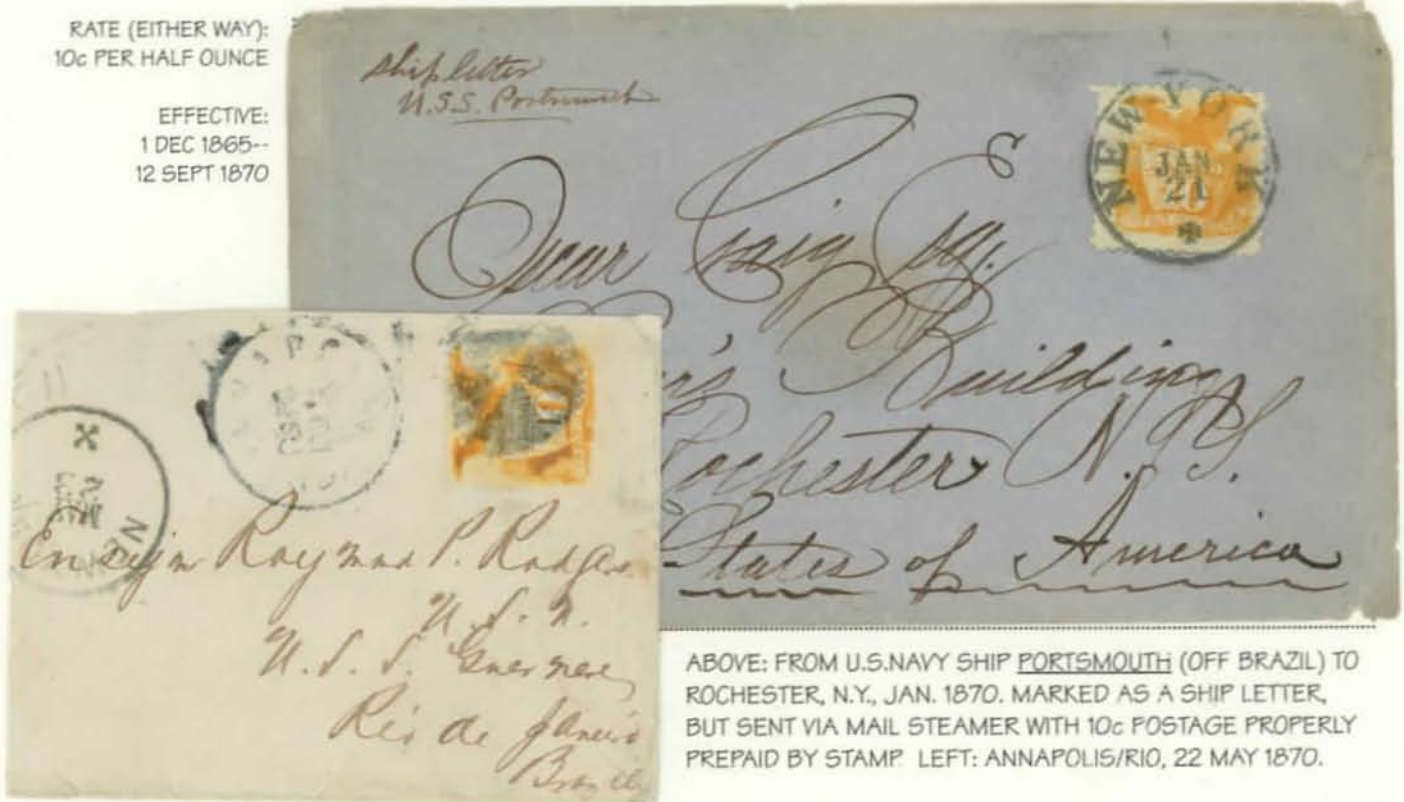 RATE (EITHER WAY):
10c PER HALF OUNCE
EFFECTIVE:
1 DEC 1865--
12 SEPT 1870
Ship letter
U.S.S. Portsmouth
NEW YORK
JAN.
21
Oscar Craig Esq.
Building
Rochester N.Y.
States of America
NEW
Ensign Raymond P. Rodgers
U.S.N.
U.S.S. Guerriere
Rio de Janeiro
Brazil
ABOVE: FROM U.S.NAVY SHIP PORTSMOUTH (OFF BRAZIL) TO
ROCHESTER, N.Y., JAN. 1870. MARKED AS A SHIP LETTER,
BUT SENT VIA MAIL STEAMER WITH 10c POSTAGE PROPERLY
PREPAID BY STAMP. LEFT: ANNAPOLIS/RIO, 22 MAY 1870.